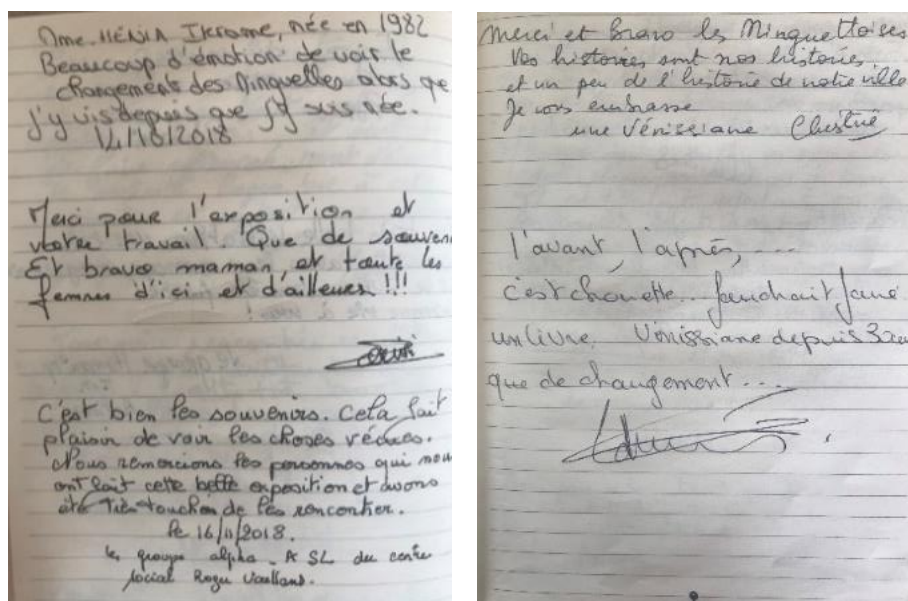 Mme. HÉNIA Ikrame, née en 1982
Beaucoup d'émotion de voir le
changement des Minguettes alors que
j'y vis depuis que j'y suis née.
14/10/2018
Merci pour l'exposition et
votre travail. Que de souven
Et bravo maman, et toute les
femmes d'ici et d'ailleurs !!!
C'est bien les souvenirs. Cela fait
plaisir de voir les choses vécues.
Nous remercions les personnes qui nous
ont fait cette belle exposition et avons
été très touchon de les rencontrer.
le 16/11/2018.
le groupe alpha - A SL du centre
social Roger Vaillant.
Merci et Bravo les Minguettoises
Vos histoires sont nos histoires,
et un peu de l'histoire de notre ville
Je vous embrasse
une Vénissiane
l'avant, l'après, ....
c'est chouette... faudrait faire
un livre. Vénissiane depuis
que de changement ...